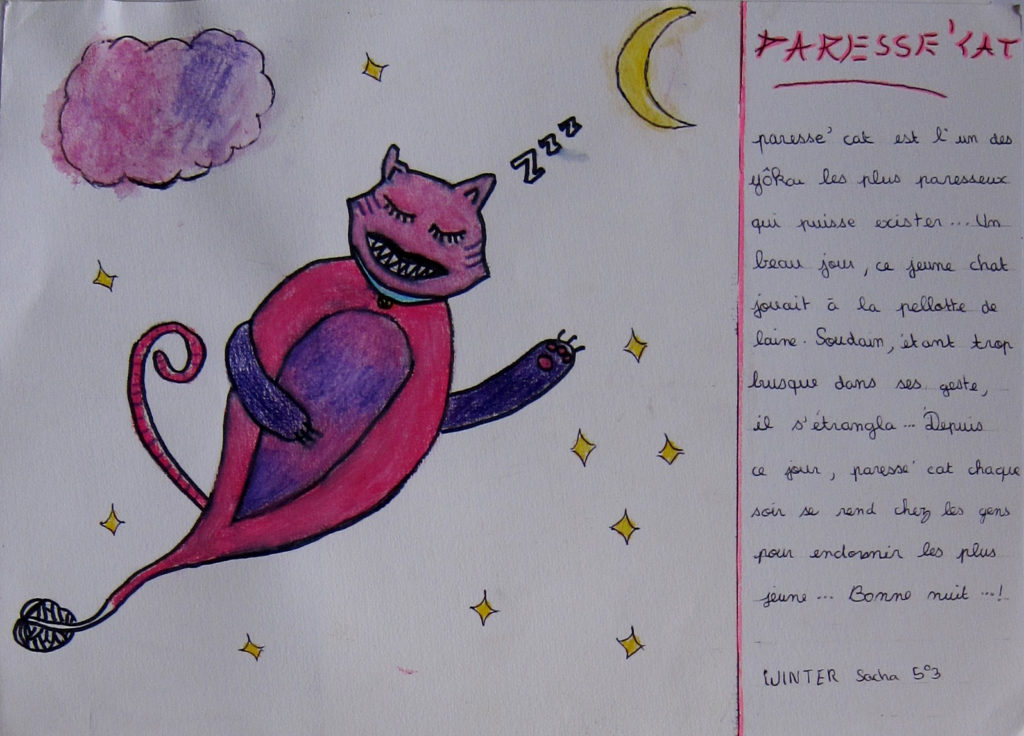 Zzz
PARESSE'CAT
paresse' cat est l'un des
yôkai les plus paresseux
qui puisse exister... Un
beau jour, ce jeune chat
jouait à la pellotte de
laine. Soudain, étant trop
brusque dans ses geste,
il s'étrangla... Depuis
ce jour, paresse' cat chaque
soir se rend chez les gens
pour endormir les plus
jeune... Bonne nuit ...!
WINTER Sacha 5°3